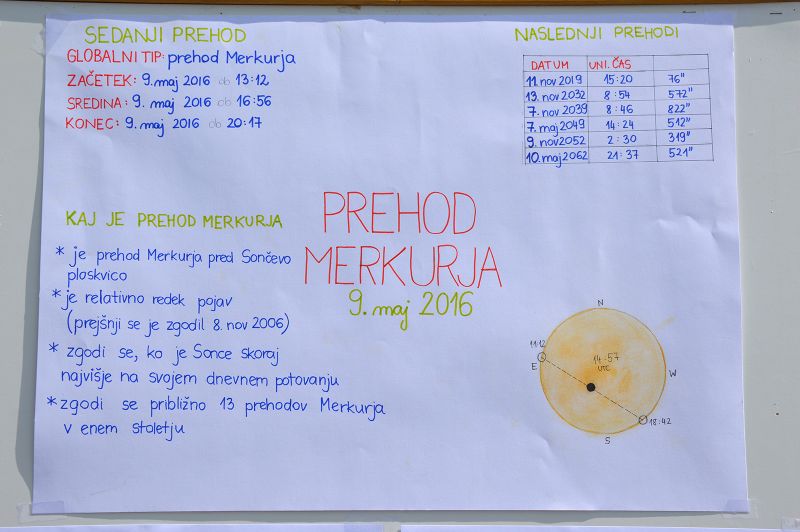 SEDANJI PREHOD
GLOBALNI TIP: prehod Merkurja
ZAČETEK: 9. maj 2016 ob 13:12
SREDINA: 9. maj 2016 ob 16:56
KONEC: 9. maj 2016 ob 20:17
NASLEDNJI PREHODI
DATUM UNI. ČAS
11. nov 2019 15:20 76"
13. nov 2032 8:54 572"
7. nov 2039 8:46 822"
7. maj 2049 14:24 512"
9. nov 2052 2:30 319"
10. maj 2062 21:37 521"
PREHOD
MERKURJA
9. maj 2016
KAJ JE PREHOD MERKURJA
* je prehod Merkurja pred Sončevo
ploskvico
* je relativno redek pojav
(prejšnji se je zgodil 8. nov 2006)
* zgodi se, ko je Sonce skoraj
najvišje na svojem dnevnem potovanju
* zgodi se približno 13 prehodov Merkurja
v enem stoletju
N
11:12
E
14:57
UTC
W
18:42
S